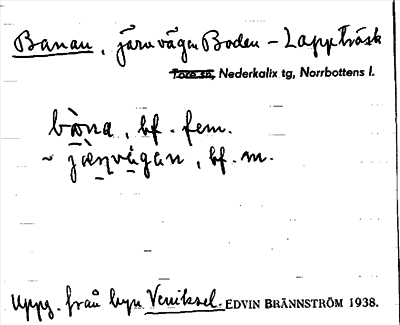 Banan, järnvägen Boden – Lappträsk
Tore sn, Nederkalix tg, Norrbottens l.
bɑ̀na, bf. fem.
~ jæ̀ṇvägan, bf. m.
Uppg. från byn Veniksel. EDVIN BRÄNNSTRÖM 1938.